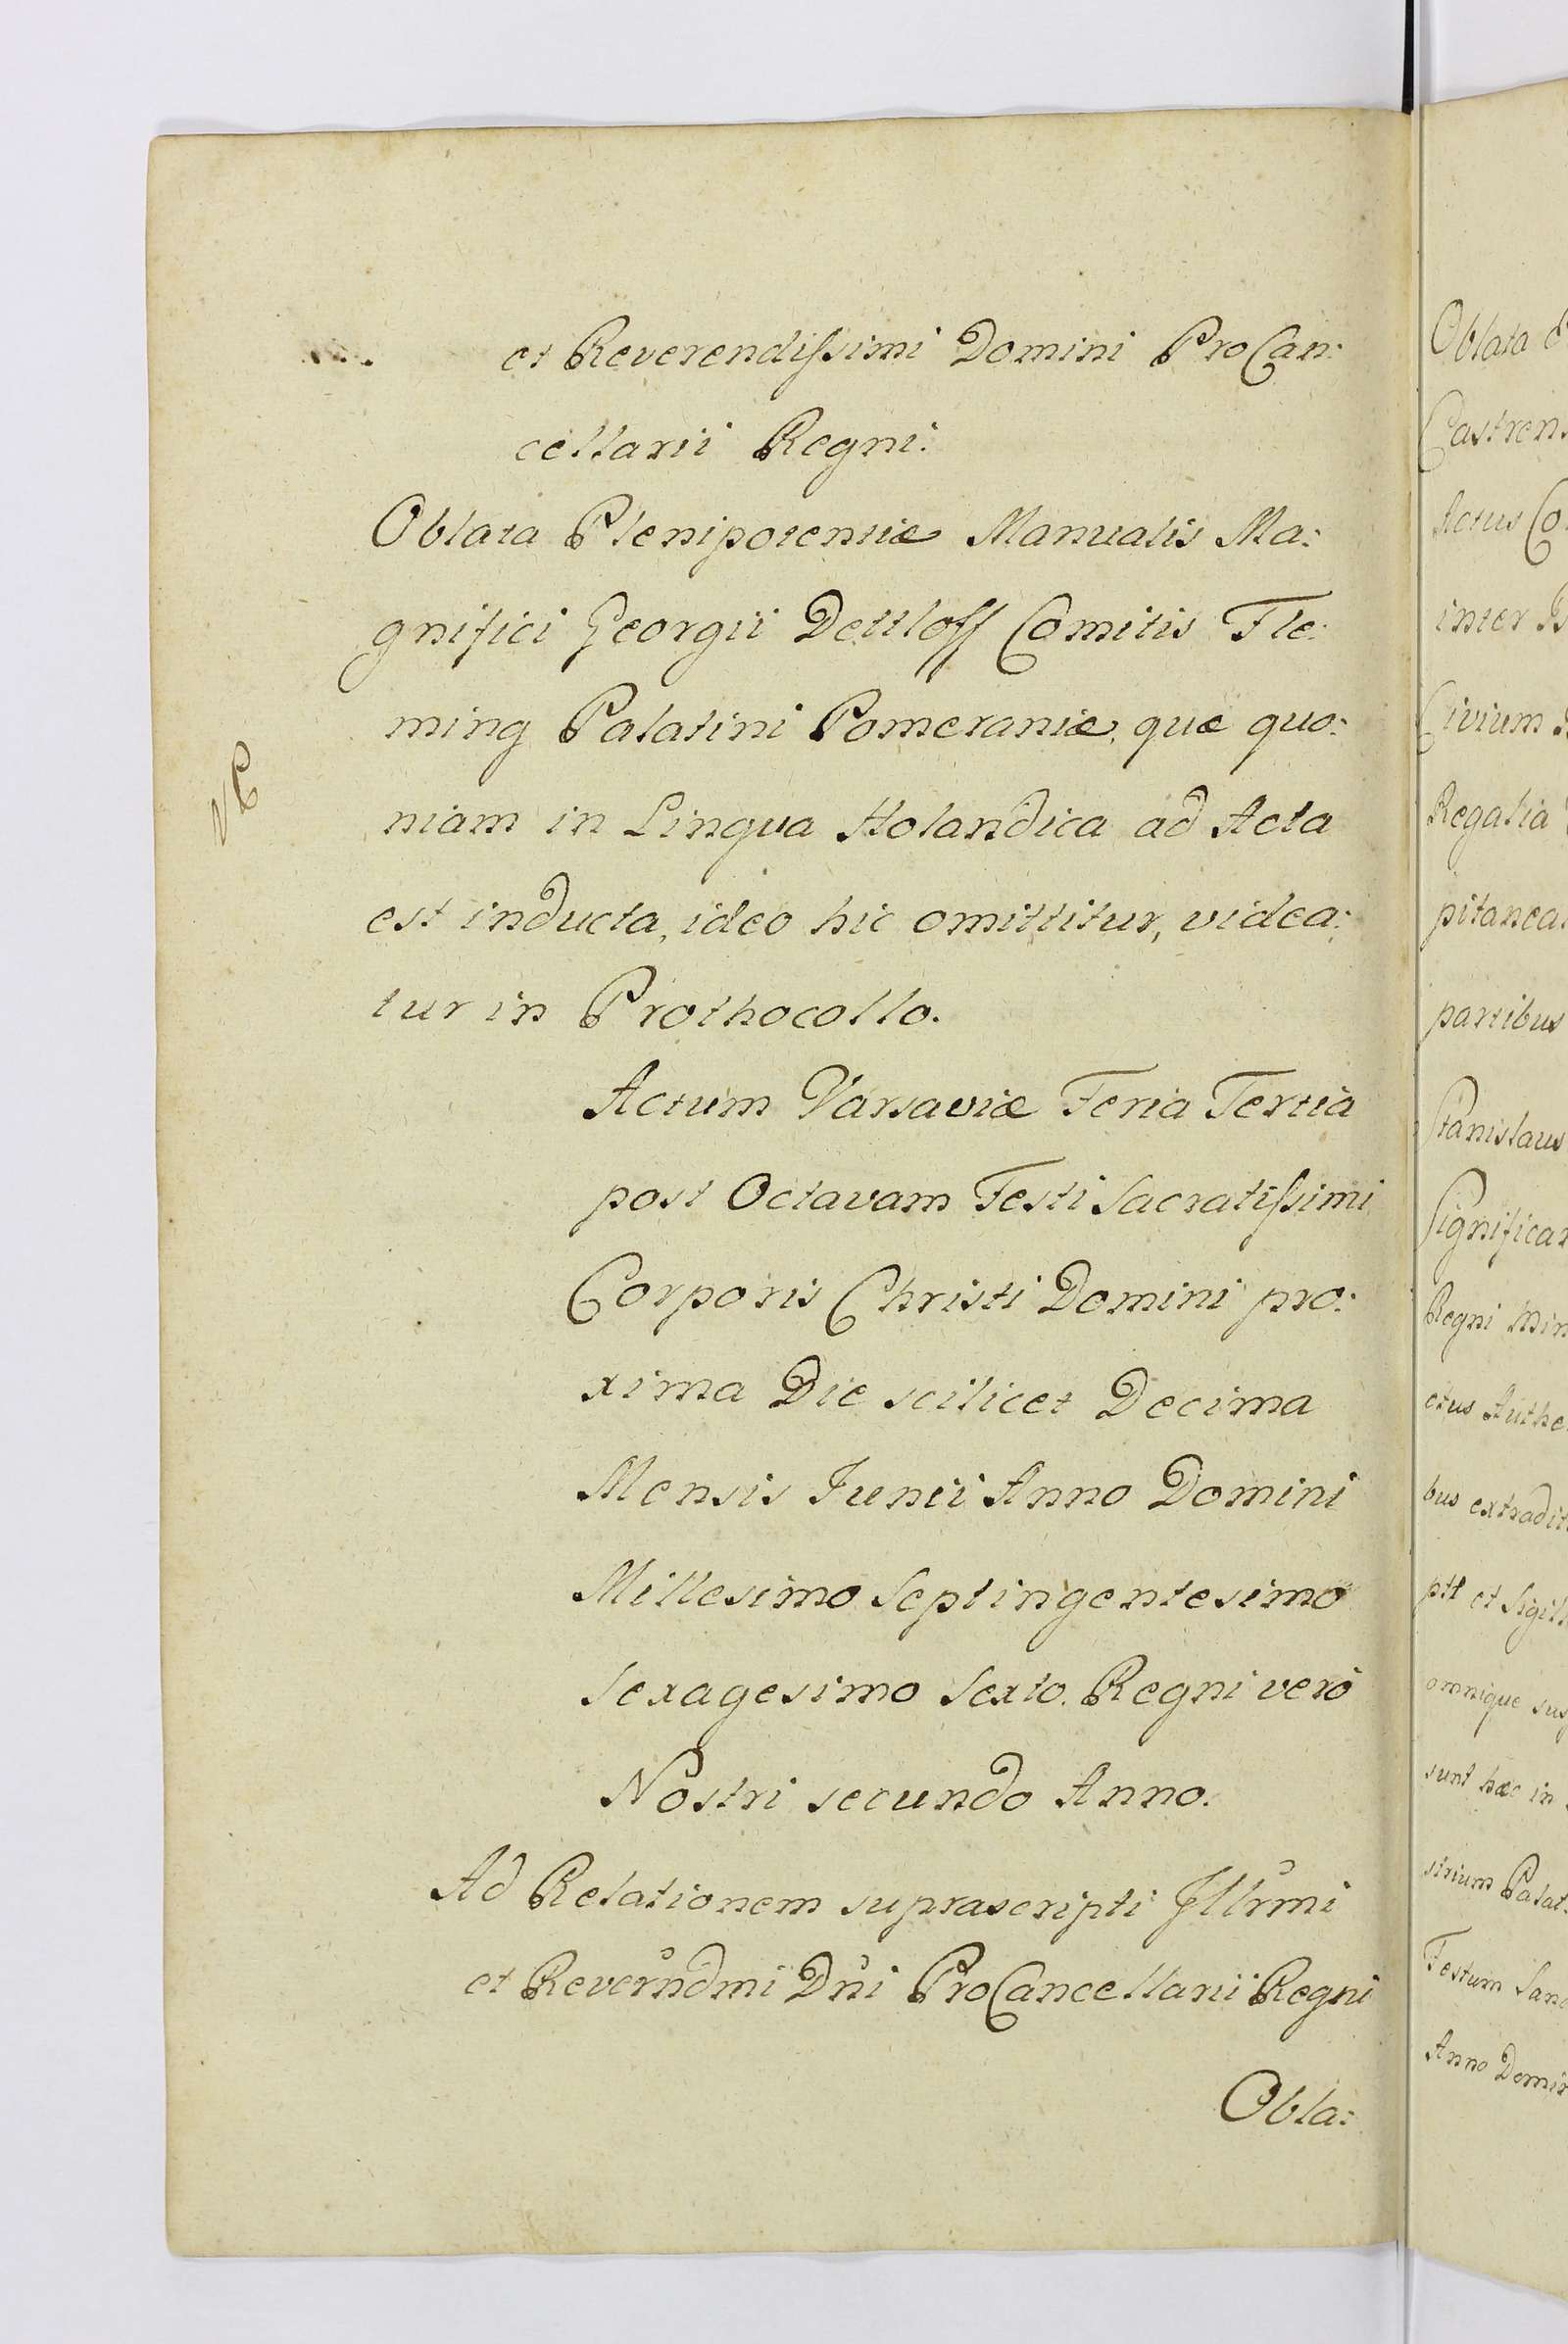 et Reverendissimi Domini ProCan:
cellarii Regni.
Oblata Plenipotentiæ Manualis Ma:
gnifici Georgii Dettloff Comitis Fle:
ming Palatini Pomeraniæ, quæ quo:
niam in Lingua Holandica ad Acta
est inducta, ideo hic omittitur, videa:
tur in Prothocollo.
Actum Varsaviæ Feria Tertia
post Octavam Festi Sacratissimi
Corporis Christi Domini pro:
xima Die scilicet Decima
Mensis Junii Anno Domini
Millesimo Septingentesimo
Sexagesimo Sexto. Regni vero
Nostri secundo Anno.
Ad Relationem suprascripti Jllrmi
et Reverndmi Dni ProCancellarii Regni
Obla:
Oblata
Castren
Actus Co
inter
Civium
Regalia
pitanea
partibus
Stanislaus
Significa
Regni Min
ctus Authe
bus extradit
ptt et Sigil
omnique sus
sunt hæc in
strium Palat:
Festum Sanc
Anno Domin